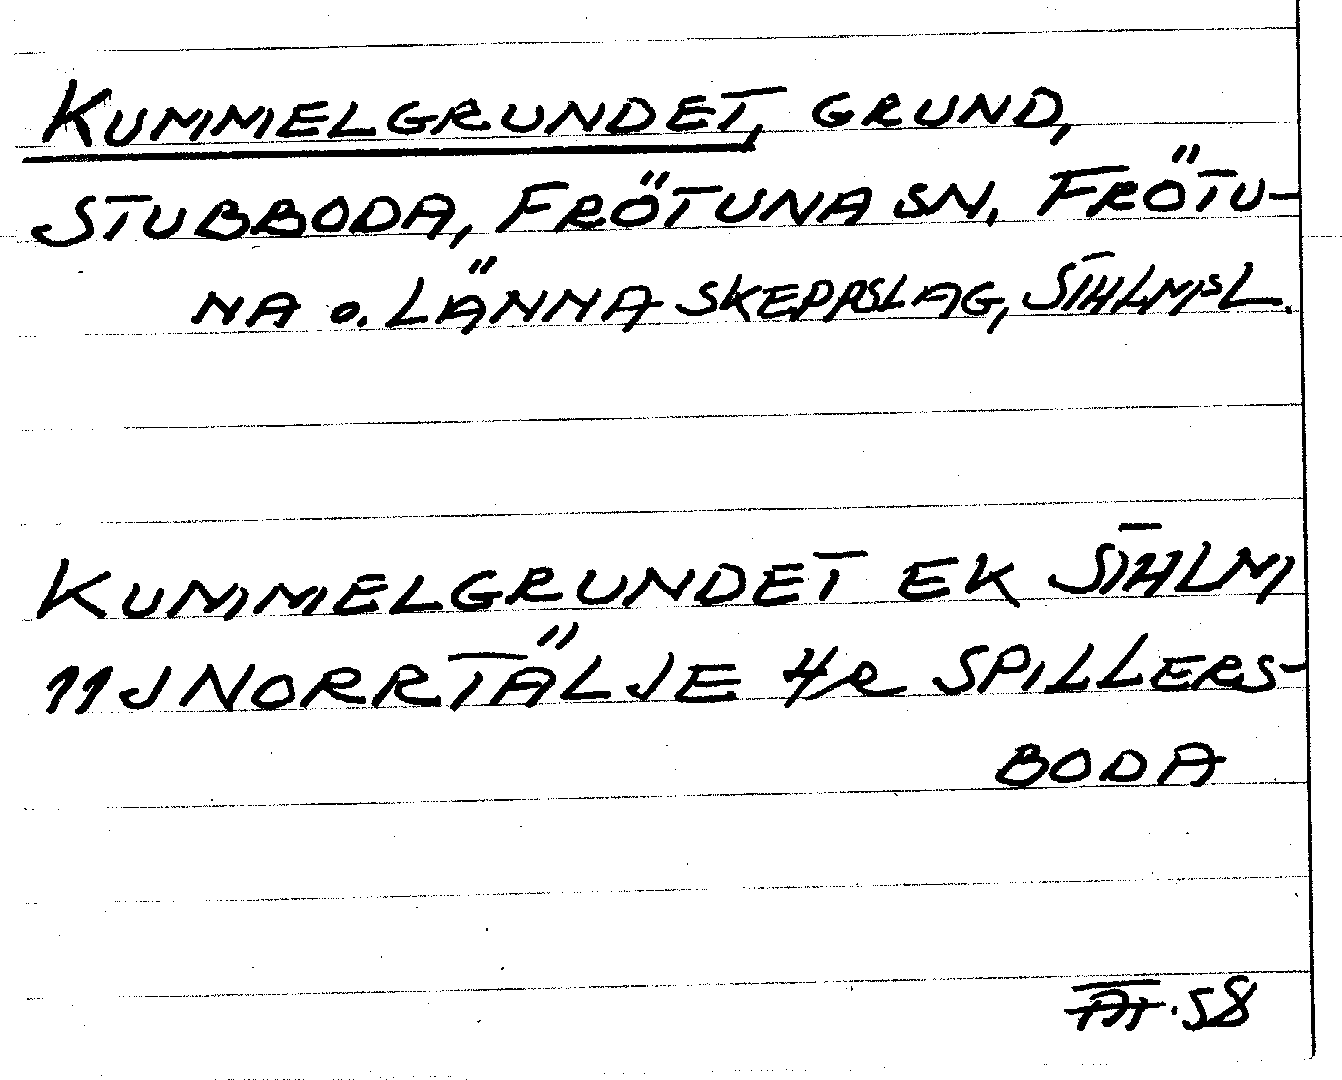 KUMMELGRUNDET, GRUND,
STUBBODA, FRÖTUNA SN, FRÖTU-
NA O. LÄNNA SKEPPSLAG, STHLMSL.
KUMMELGRUNDET EK STHLM
11J NORRTÄLJE 4/2 SPILLERS-
BODA
58